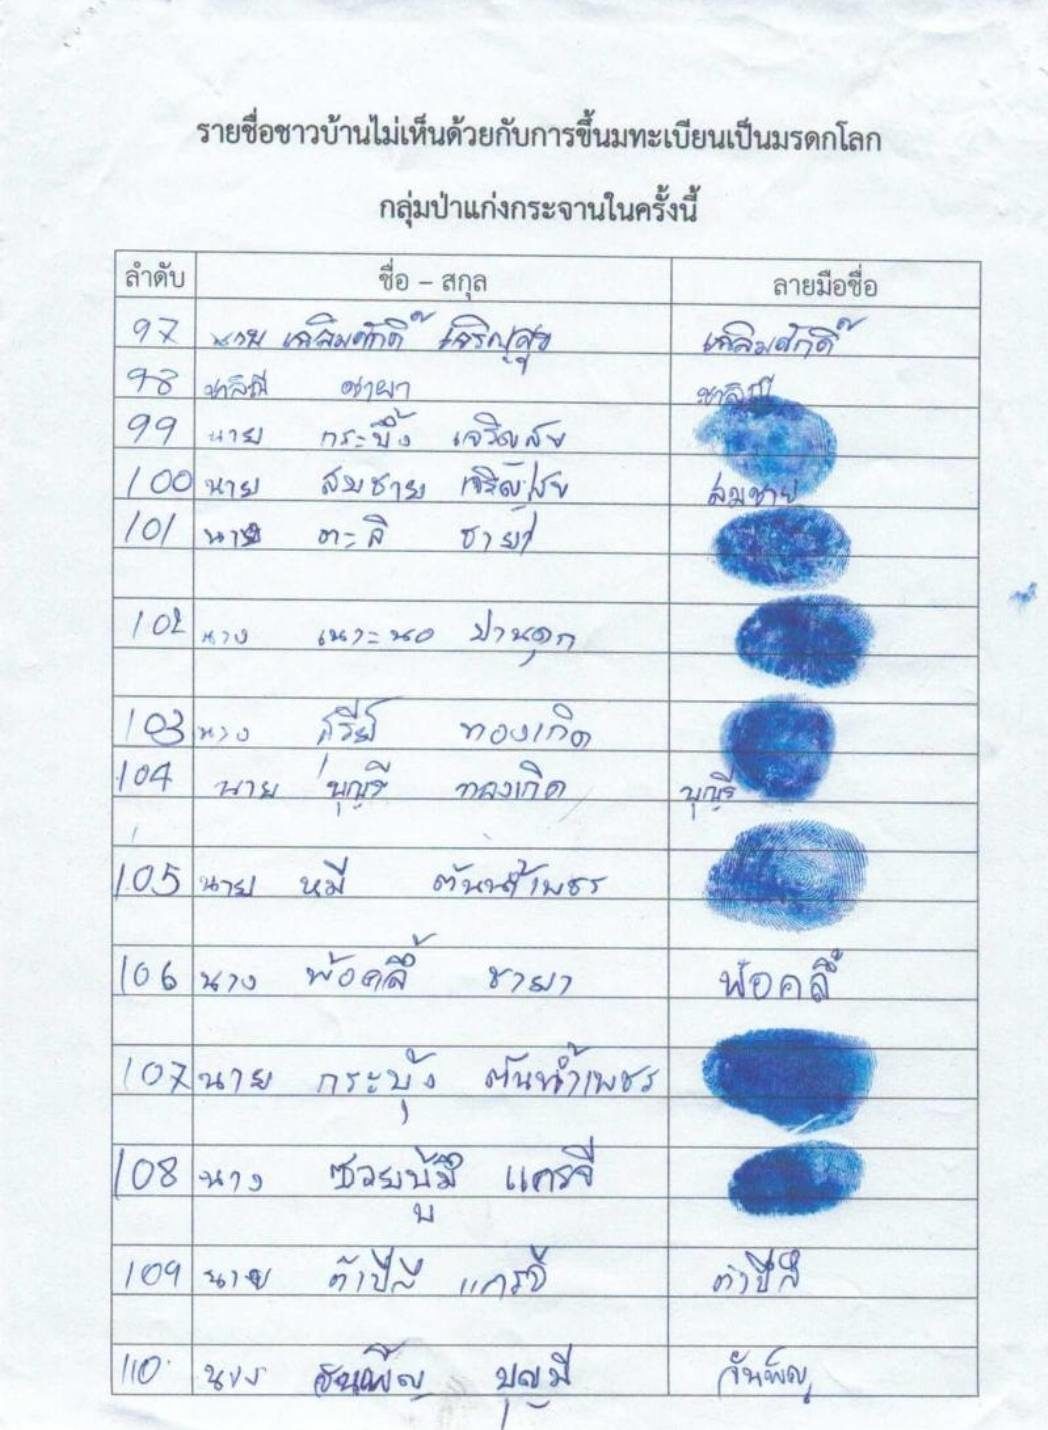 รายชื่อชาวบ้านไม่เห็นด้วยกับการขึ้นมทะเบียนเป็นมรดกโลก
กลุ่มป่าแก่งกระจานในครั้งนี้
ลำดับ ชื่อ – สกุล ลายมือชื่อ
97 นาย เฉลิมศักดิ์ เจริญสุข เฉลิมศักดิ์
98 ชาลิณี ชายา ชาลิณี
99 นาย กระบึ้ง
100 นาย สมชาย สมชาย
101 นาย ตะลิ ชายา
102 นาง เนาะนอ ปานดุก
103 นาง ทองเกิด
104 นาย บุญรี ทองเกิด บุญรี
105 นาย หมี ต้นน้ำเพชร
106 นาง พ้อคลี้ ชายา พ้อคลี้
107 นาย กระบุ้ง ต้นน้ำเพชร
108 นาง แครจี
109 นาย แครจี
110 นาง บุญมี